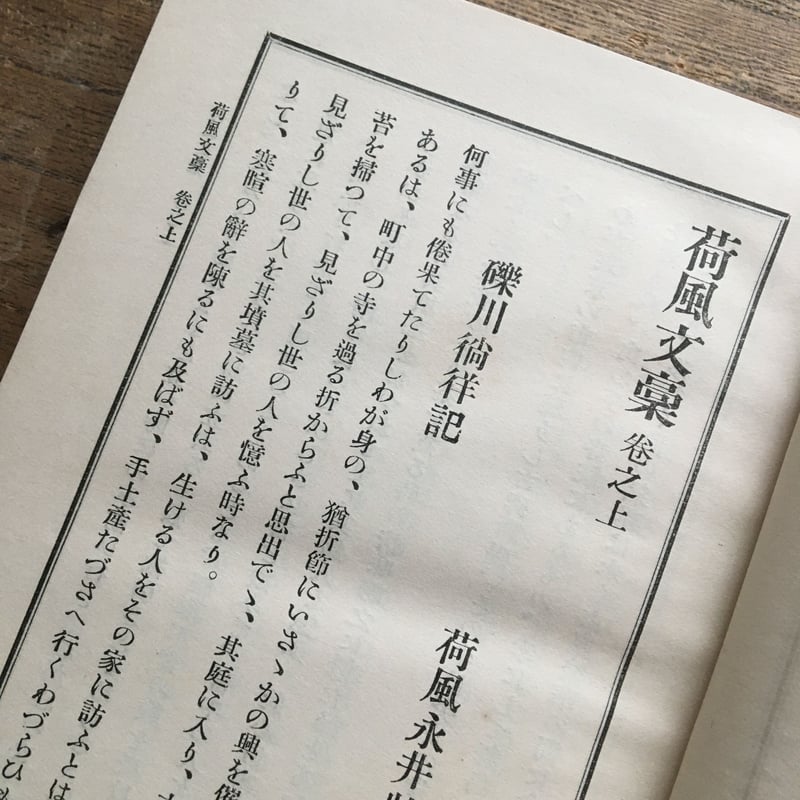 荷風文稾 卷之上
荷風永井
礫川徜徉記
何事にも倦果てたりしわが身の、猶折節にいさゝかの興を催
あるは、町中の寺を過る折からふと思出でゝ、其庭に入り、
苔を掃つて、見ざりし世の人を憶ふ時なり。
見ざりし世の人を其墳墓に訪ふは、生ける人をその家に訪ふとは
りて、寒暄の辭を陳るにも及ばず、手土產たづさへ行くわづらひも
荷風文稾 卷之上